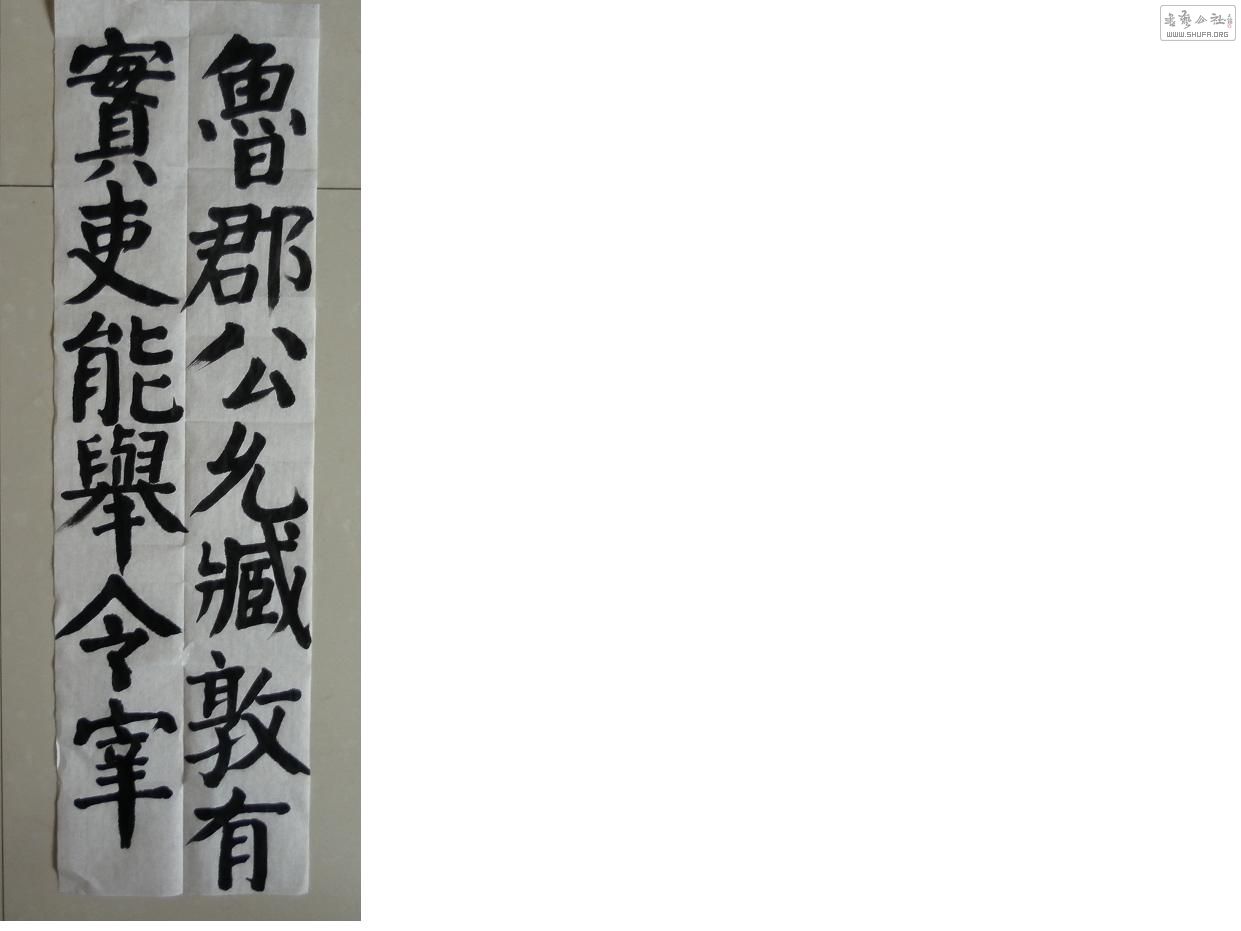 魯郡公允臧敦有
實吏能舉令宰
书艺公社
WWW.SHUFA.ORG